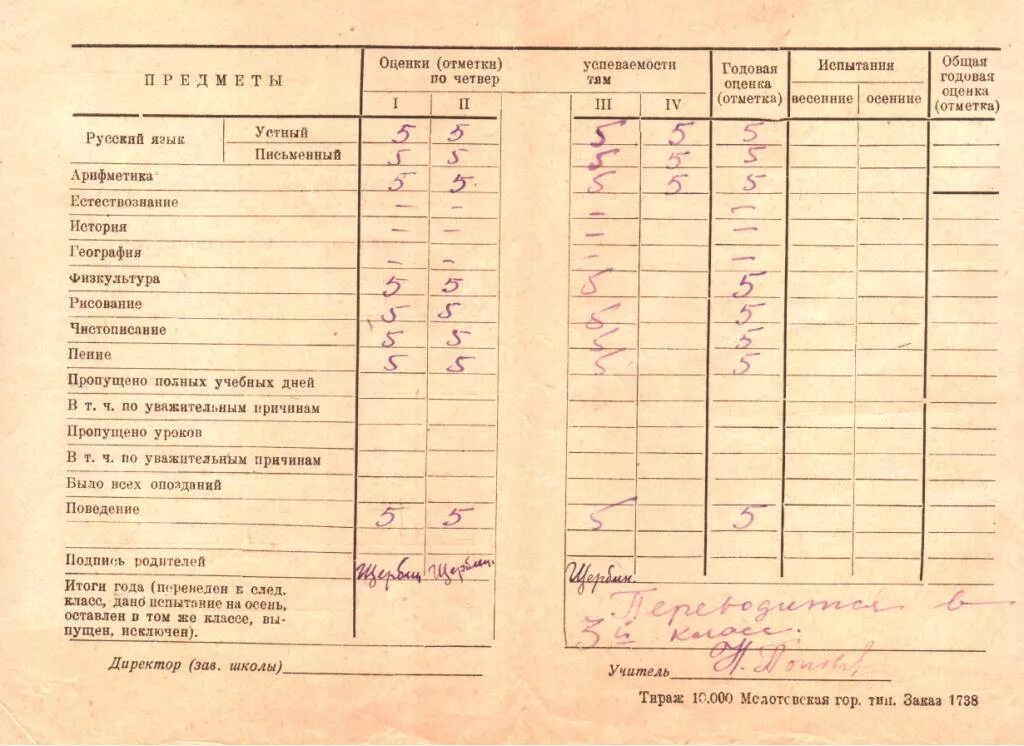 ПРЕДМЕТЫ Оценки (отметки) успеваемости Годовая Испытания Общая
по четвер тям оценка годовая
I II III IV (отметка) весенние осенние оценка (отметка)
Русский язык Устный 5 5 5 5 5
Письменный 5 5 5 5 5
Арифметика 5 5 5 5 5
Естествознание – – – –
История – – – –
География – – – –
Физкультура 5 5 5 5
Рисование 5 5 5 5
Чистописание 5 5 5 5
Пение 5 5 5 5
Пропущено полных учебных дней
В т. ч. по уважительным причинам
Пропущено уроков
В т. ч. по уважительным причинам
Было всех опозданий
Поведение 5 5 5 5
Подпись родителей Щербин Щербин. Щербин.
Итоги года (переведен в след.
класс, дано испытание на осень,
оставлен в том же классе, вы-
пущен, исключен).
Переводится в
3й класс.
Директор (зав. школы)
Учитель Н. Попова
Тираж 10.000 Молотовская гор. тип. Заказ 1738